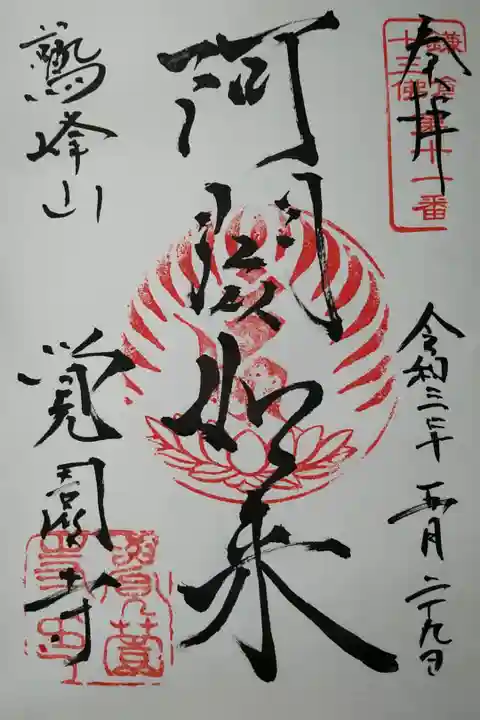 奉拝
鎌倉第十一番
十三佛
令和三年五月二十九日
阿閦如来
鷲峰山
覚園寺